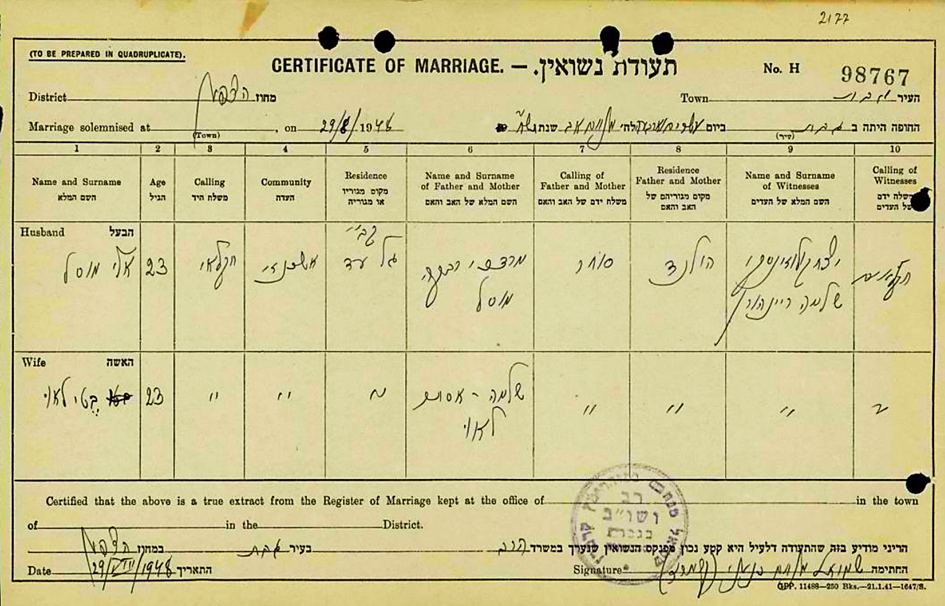 2177
(TO BE PREPARED IN QUADRUPLICATE).
CERTIFICATE OF MARRIAGE. — תעודת נשואין.
No. H 98767
District מחוז
Town העיר
Marriage solemnised at , on 29/8/1948 החופה היתה ב ביום שנת
(Town) (עיר)
1 2 3 4 5 6 7 8 9 10
Name and Surname השם המלא
Age הגיל
Calling משלח היד
Community העדה
Residence מקום מגוריו או מגוריה
Name and Surname of Father and Mother השם המלא של האב והאם
Calling of Father and Mother משלח ידם של האב והאם
Residence Father and Mother מקום מגוריהם של האב והאם
Name and Surname of Witnesses השם המלא של העדים
Calling of Witnesses משלח ידם של העדים
Husband הבעל
אלי מוסל 23 חקלאי אשכנזי גל עד מרדכי רבקה מוסל סוחר הולנד שלמה
Wife האשה
בטי לאוי 23 " " " שלמה - אסתר לאוי " " " "
Certified that the above is a true extract from the Register of Marriage kept at the office of in the town
of in the District.
הריני מודיע בזה שהתעודה דלעיל היא קטע נכון מפנקס הנשואין שנערך במשרד הרב בעיר במחוז
Date 29/VIII/1948 התאריך
Signature החתימה
רב ושו"ב
GPP. 11488—250 Bks.—21.1.41—1647/S.